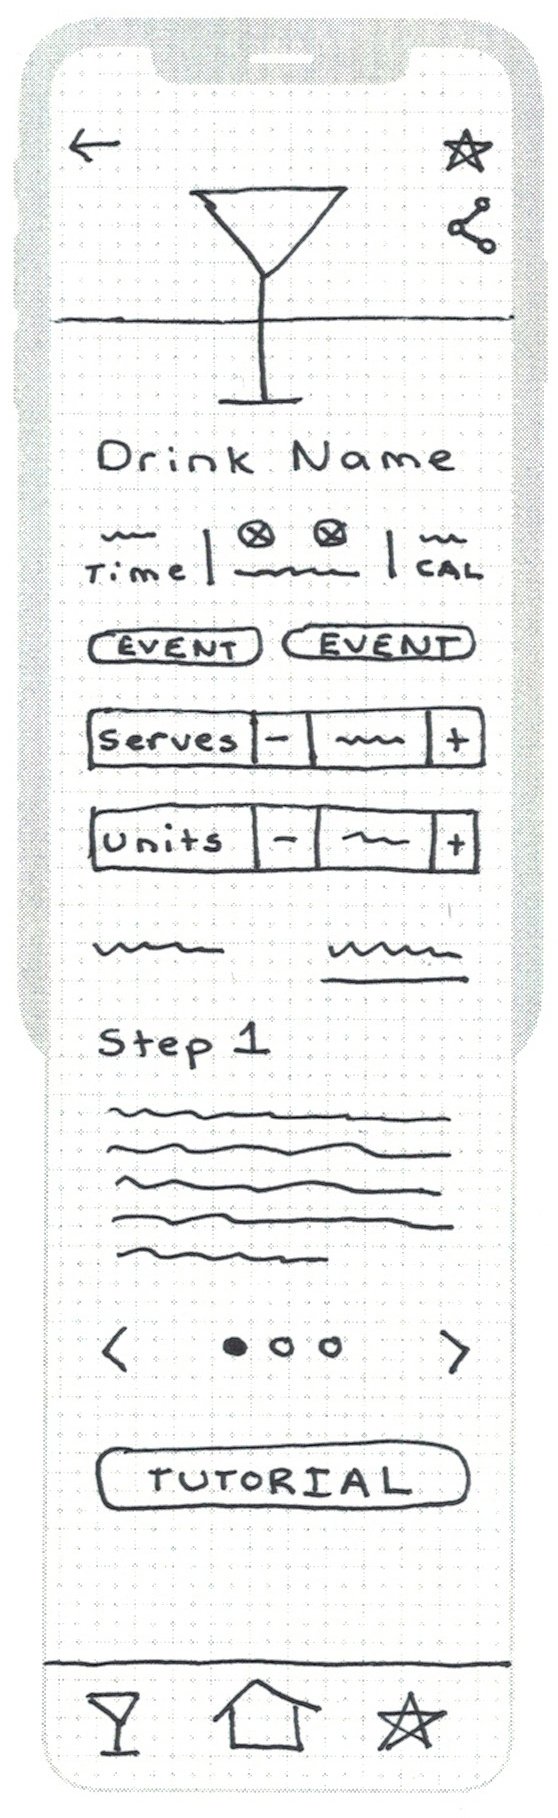 Drink Name
Time | | CAL
EVENT EVENT
Serves - +
Units - +
Step 1
< >
TUTORIAL